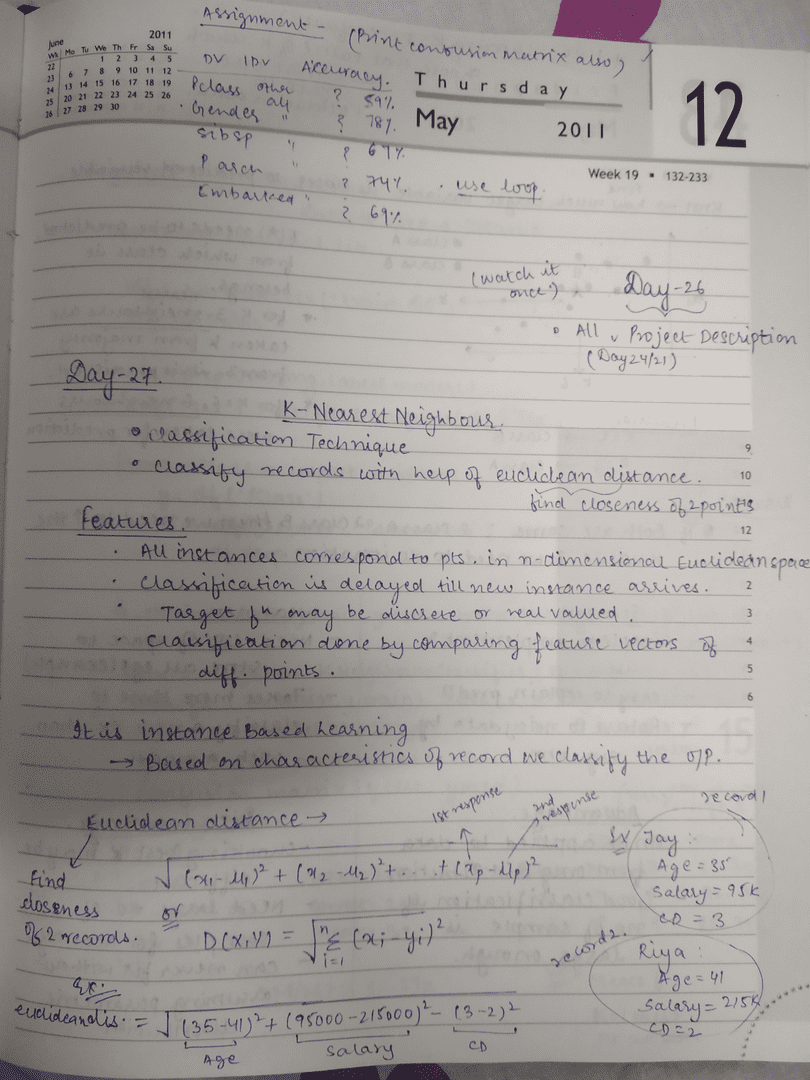 Assignment - (Print confusion matrix also)
June 2011
Wk Mo Tu We Th Fr Sa Su
22 1 2 3 4 5
23 6 7 8 9 10 11 12
24 13 14 15 16 17 18 19
25 20 21 22 23 24 25 26
26 27 28 29 30
DV IDV Accuracy.
Pclass other all ? 59%
Gender " ? 78%
Sibsp " ? 67%
Parch " ? 74% . use loop.
Embarked " ? 69%
Thursday
May 2011
12
Week 19 • 132-233
(watch it once) Day-26
All Project Description
(Day 24/21)
Day-27.
K-Nearest Neighbour.
• Classification Technique
9
• Classify records with help of euclidean distance.
10
find closeness of 2 points
12
Features.
· All instances correspond to pts. in n-dimensional Euclidean space
· Classification is delayed till new instance arrives.
2
· Target fⁿ may be discrete or real valued.
3
· Classification done by comparing feature vectors of
4
diff. points.
5
6
It is instance Based Learning
→ Based on characteristics of record we classify the O/P.
Euclidean distance →
1st response
2nd response
√(x₁-μ₁)² + (x₂-μ₂)² + .... + (xp-μp)²
Find closeness of 2 records.
or
D(x,y) = √ⁿΣᵢ₌₁ (xi-yi)²
record 1
Ex Jay :
Age = 35
Salary = 95K
CD = 3
record 2.
Riya :
Age = 41
Salary = 215K
CD = 2
Ex:
euclidean dis. = √(35-41)² + (95000-215000)² - (3-2)²
Age Salary CD